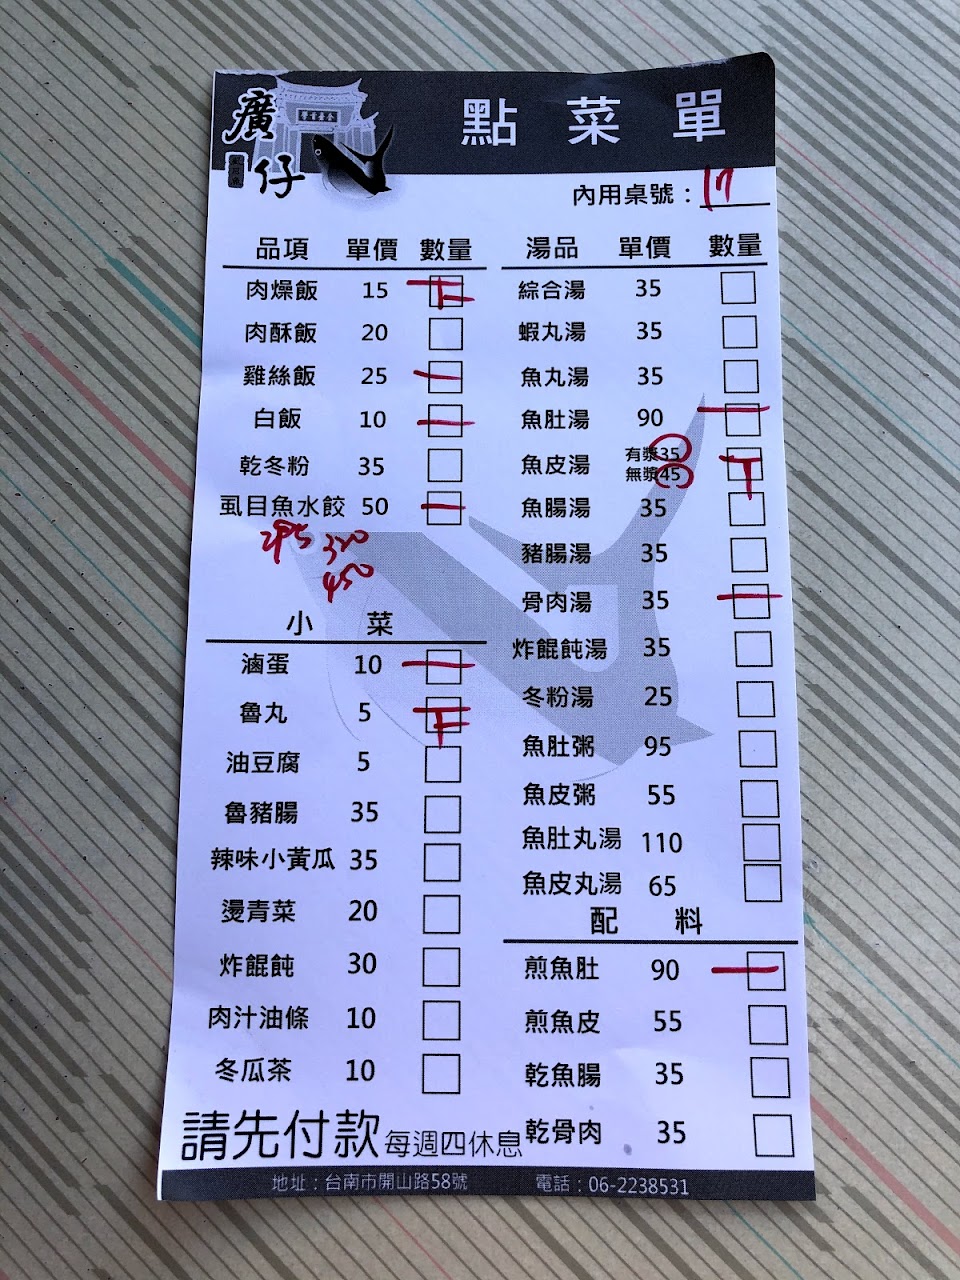 廣仔
點菜單
全臺首學
內用桌號：17
品項 單價 數量
肉燥飯 15
肉酥飯 20
雞絲飯 25
白飯 10
乾冬粉 35
虱目魚水餃 50
295 320
450
小菜
滷蛋 10
魯丸 5
油豆腐 5
魯豬腸 35
辣味小黃瓜 35
燙青菜 20
炸餛飩 30
肉汁油條 10
冬瓜茶 10
湯品 單價 數量
綜合湯 35
蝦丸湯 35
魚丸湯 35
魚肚湯 90
魚皮湯 有漿35
無漿45
魚腸湯 35
豬腸湯 35
骨肉湯 35
炸餛飩湯 35
冬粉湯 25
魚肚粥 95
魚皮粥 55
魚肚丸湯 110
魚皮丸湯 65
配料
煎魚肚 90
煎魚皮 55
乾魚腸 35
乾骨肉 35
請先付款 每週四休息
地址：台南市開山路58號 電話：06-2238531